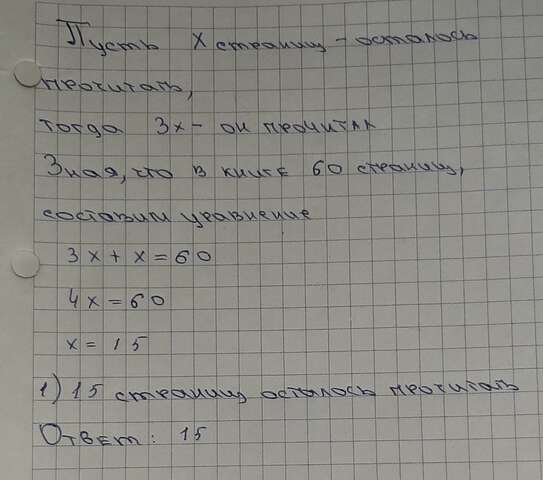 Пусть x страниц - осталось
прочитать,
тогда 3x - он прочитал
Зная, что в книге 60 страниц,
составим уравнение
3x + x = 60
4x = 60
x = 15
1) 15 страниц осталось прочитать
Ответ: 15